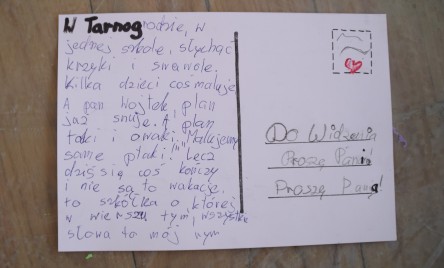 W Tarnogrodzie, w
jednej szkole, słychać
krzyki i swawole.
Kilka dzieci coś maluje
A pan Wojtek plan
już snuje. A plan
taki i owaki: "Malujemy
same ptaki!" Lecz
dziś się coś kończy
i nie są to wakacje,
to szkółka o której
w wierszu tym, wszystkie
słowa to mój rym
Do Widzenia
Proszę Pani!
Proszę Pana!